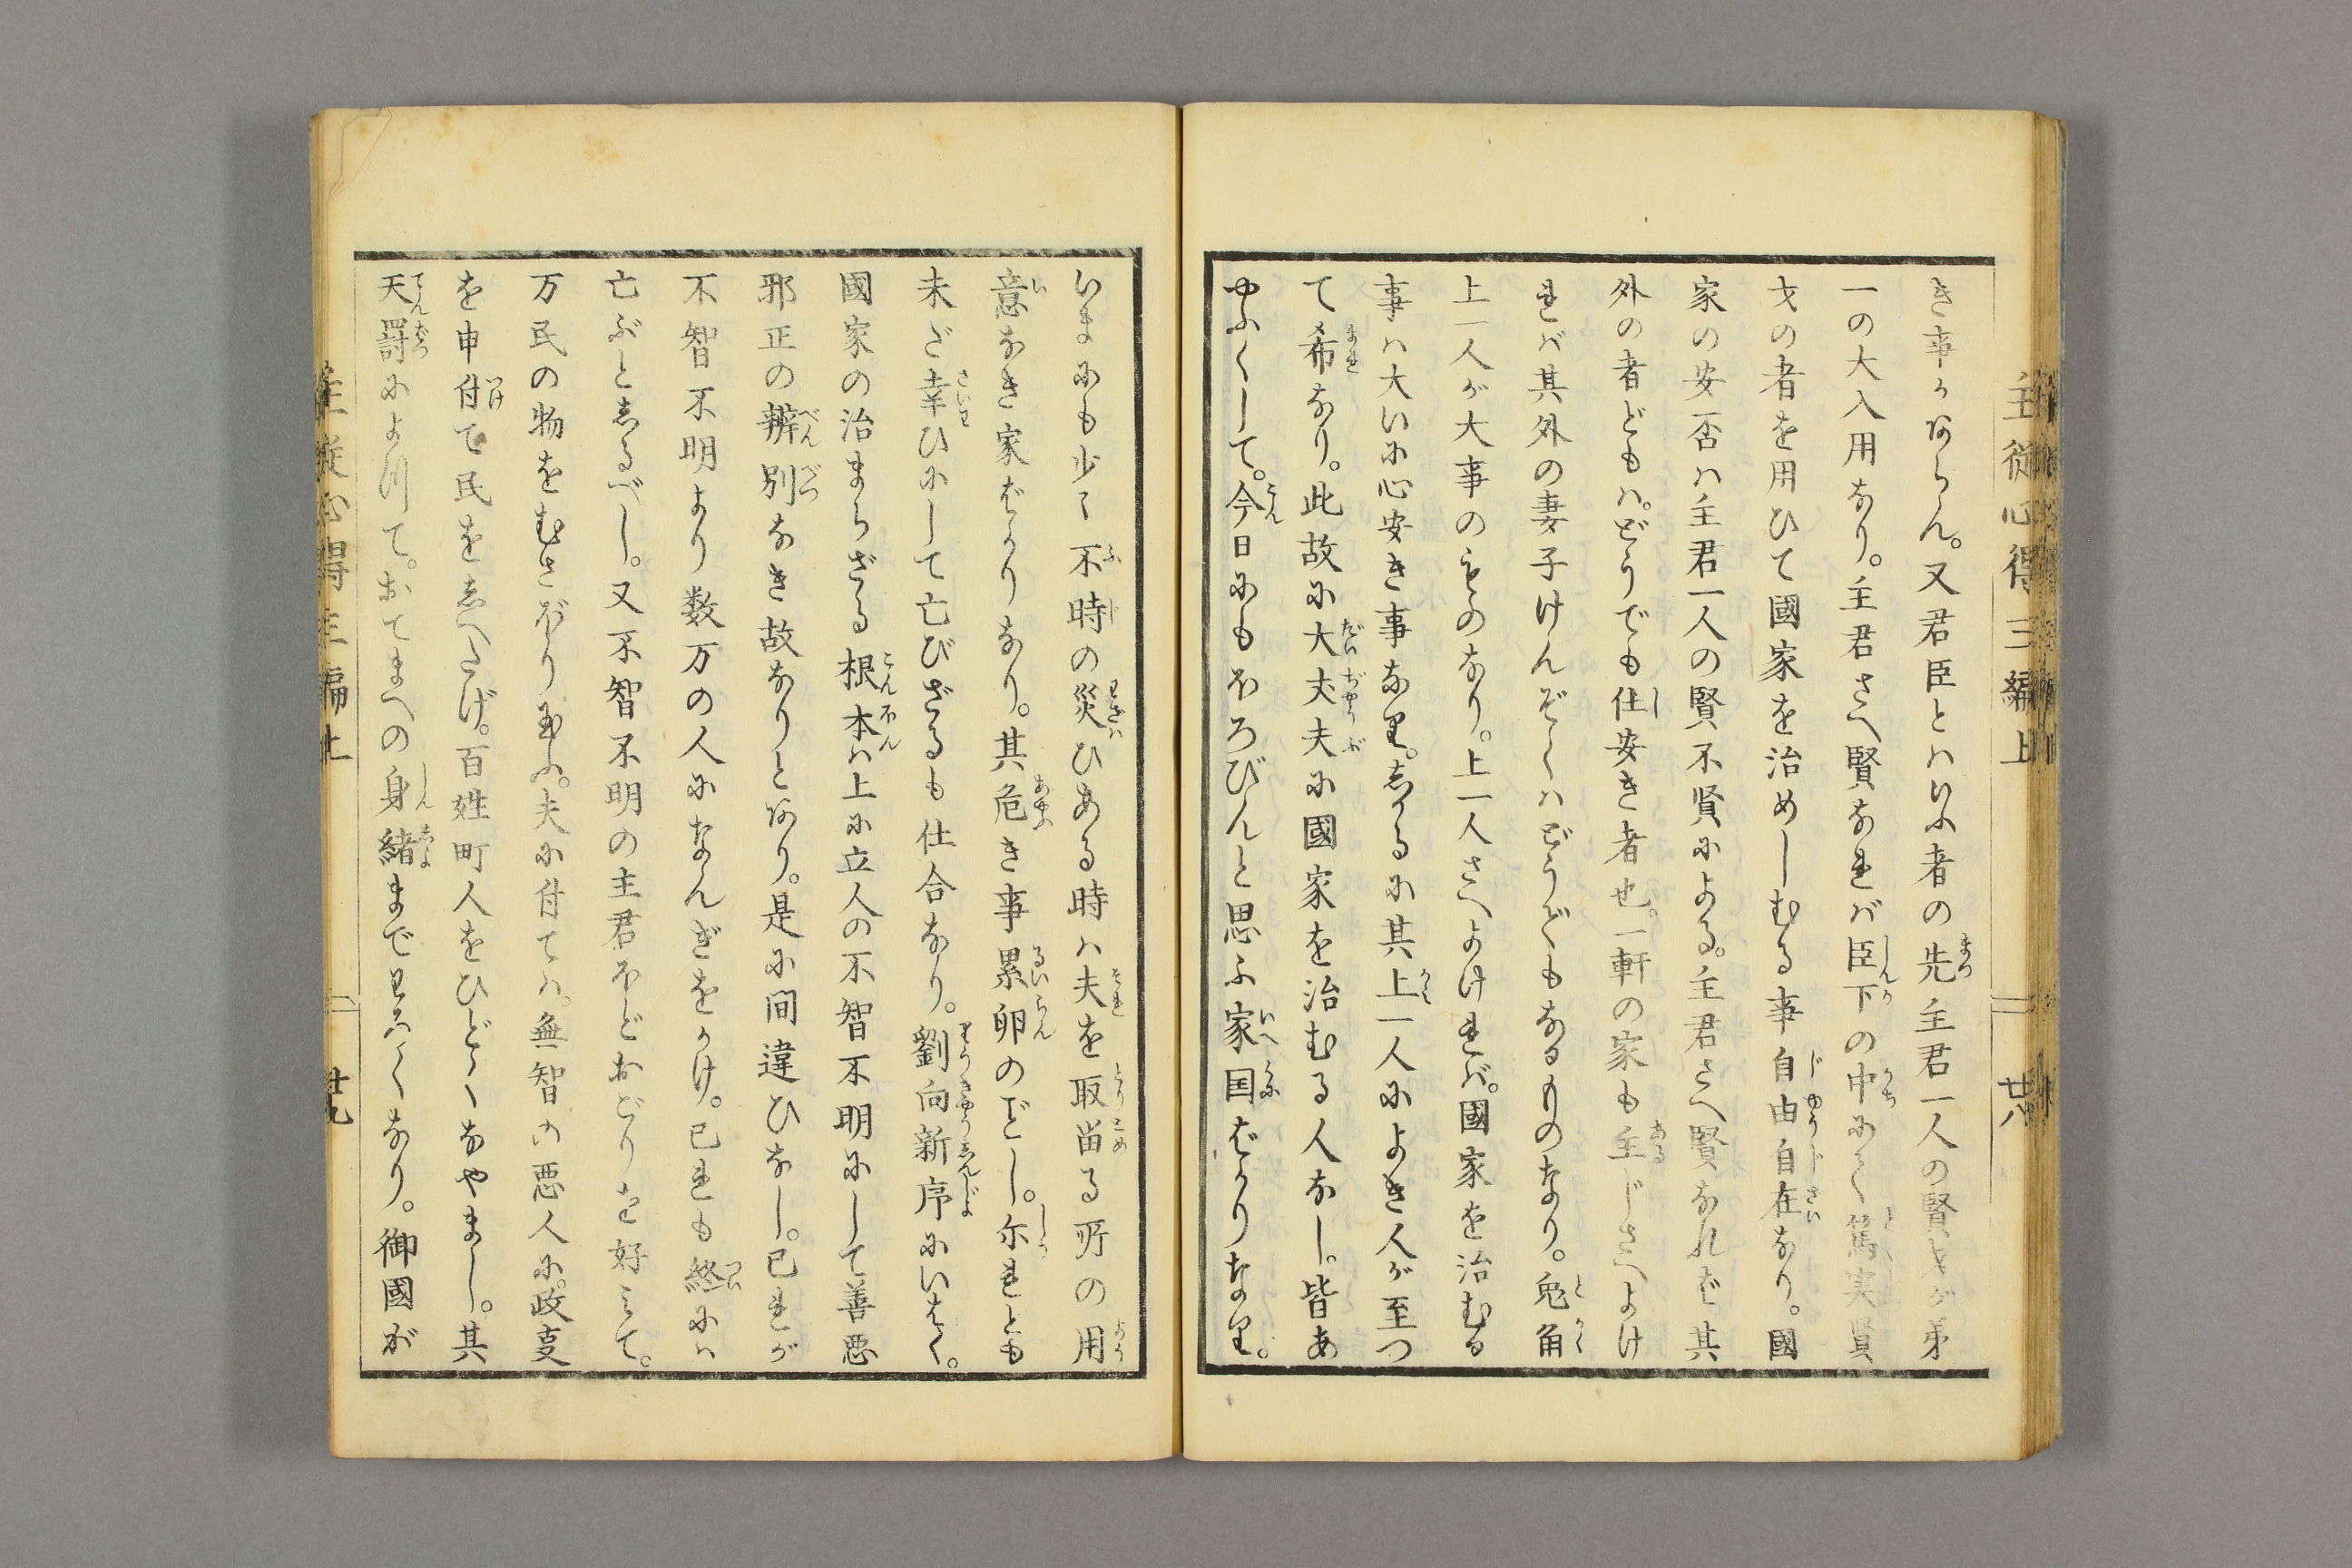 主從心得三編上
廿八
き事かあらん。又君臣とはいふ者の先主君一人の賢才が第
一の大入用なり。主君さへ賢なれば臣下の中にて篤実賢
才の者を用ひて國家を治めしむる事自由自在なり。國
家の安否は主君一人の賢不賢による。主君さへ賢なれば其
外の者どもは。どうでも仕安き者也。一軒の家も主じさへよけ
れば其外の妻子けんぞくはどうどもなるものなり。兎角
上一人が大事のものなり。上一人さへよければ。國家を治むる
事は大いに心安き事なり。しかるに其上一人によき人が至つ
て希なり。此故に大丈夫に國家を治むる人なし。皆あ
やふくして。今日にもほろびんと思ふ家国ばかりなり。
いまにも少々不時の災ひある時は夫を取留る所の用
意なき家ばかりなり。其危き事累卵のごとし。尓れとも
未だ幸ひにして亡びざるも仕合なり。劉向新序にいはく。
國家の治まらざる根本は上に立人の不智不明にして善悪
邪正の辨別なき故なりとあり。是に間違ひなし。己れが
不智不明より数万の人になんぎをかけ。己れも終には
亡ぶとしるべし。又不智不明の主君ほどおごりを好みて。
万民の物をむさぼり取ふ。夫に付ては。無智の悪人に。政事
を申付て民をしへたげ。百姓町人をひどくなやまし。其
天罰によつて。おてまへの身緒までわろくなり。御國が
主從心得三編上
廿九